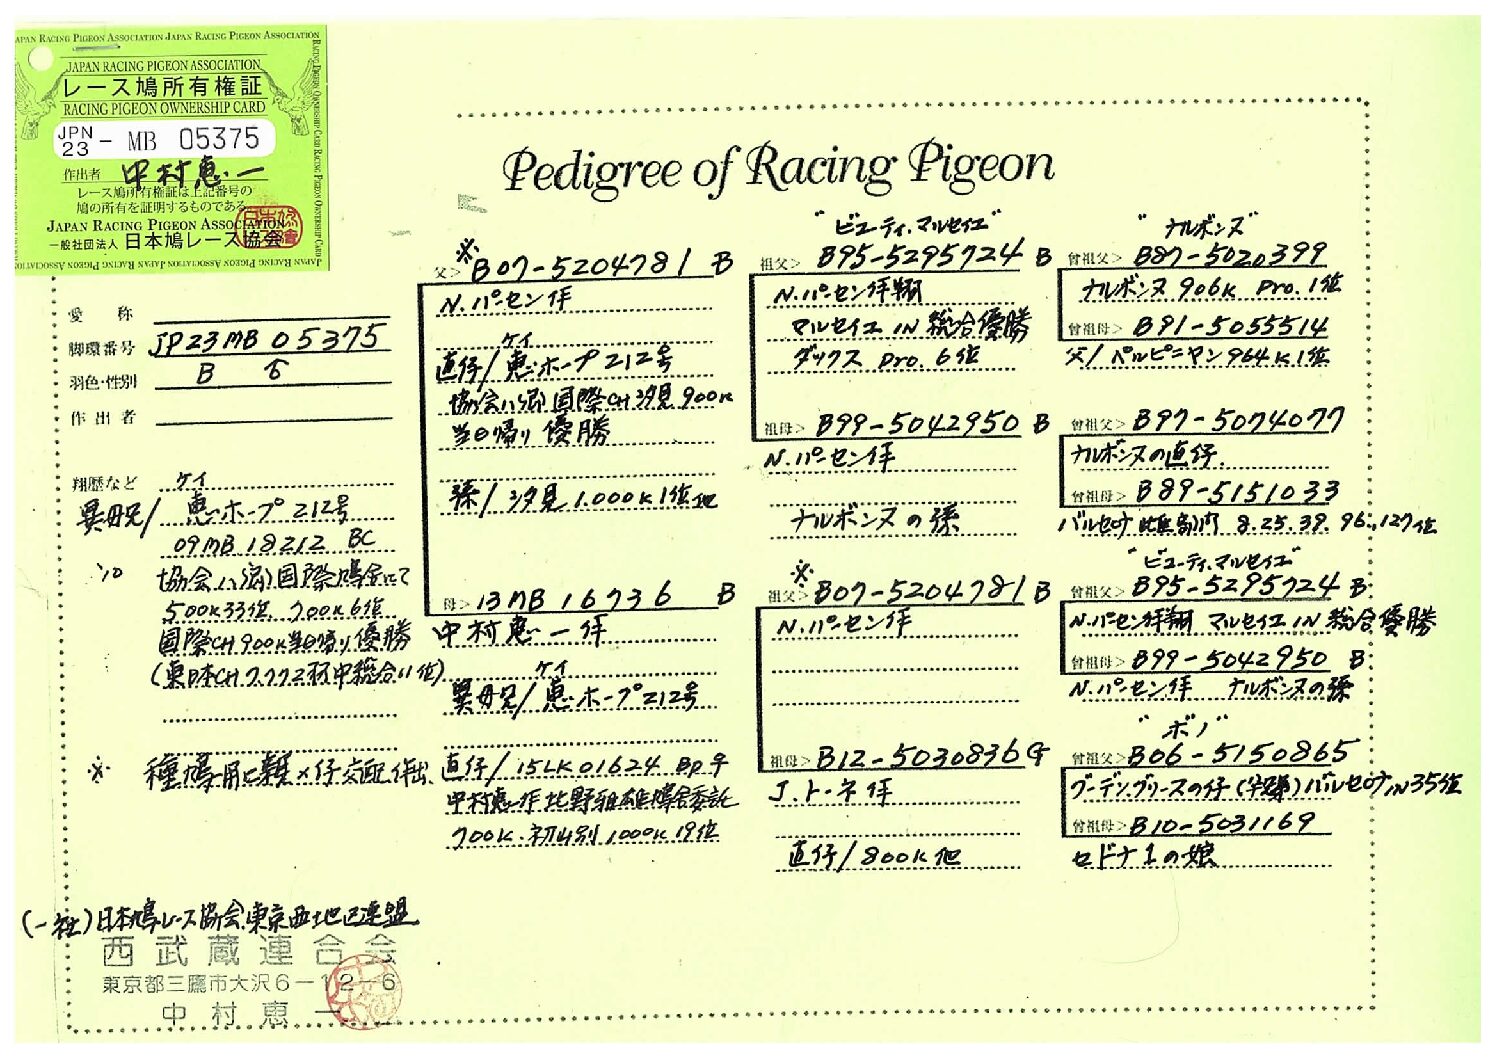 JAPAN RACING PIGEON ASSOCIATION JAPAN RACING PIGEON ASSOCIATION
JAPAN RACING PIGEON ASSOCIATION
レース鳩所有権証
RACING PIGEON OWNERSHIP CARD
JPN 23 - MB 05375
作出者 中村恵一
レース鳩所有権証は上記番号の
鳩の所有を証明するものである。
JAPAN RACING PIGEON ASSOCIATION
一般社団法人 日本鳩レース協会
Pedigree of Racing Pigeon
愛 称
脚環番号 JP23MB05375
羽色・性別 B ♂
作出者
翔歴など
ケイ
異母兄/ 恵ホープ212号
09MB18212 BC
'10 協会八郷国際鳩舎にて
500K33位 700K6位
国際CH900K当日帰り優勝
(東日本CH7,772羽中総合11位)
※ 種鳩用に親×仔交配作出
父> ※ B07-5204781 B
N.パーセン作
ケイ
直仔/恵ホープ212号
協会八郷国際CH汐見900K
当日帰り優勝
孫/汐見1.000K1位他
母> 13MB16736 B
中村恵一作
ケイ
異母兄/恵ホープ212号
直仔/15LK01624 BP♀
中村恵一作北野雅雄鳩舎委託
700K.初山別1000K19位
"ビューティ.マルセイエ"
祖父> B95-5295724 B
N.パーセン作翔
マルセイエIN総合優勝
ダックス Pro.6位
祖母> B99-5042950 B
N.パーセン作
ナルボンヌの孫
祖父> ※ B07-5204781 B
N.パーセン作
祖母> B12-5030836 G
J.ト.ネ作
直仔/800K他
"ナルボンヌ"
曾祖父> B87-5020399
ナルボンヌ906K Pro.1位
曾祖母> B91-5055514
父/ペルピニャン964K1位
曾祖父> B97-5074077
ナルボンヌの直仔
曾祖母> B89-5151033
バルセロナ雌部門 8.25.39.96.127位
"ビューティ.マルセイエ"
曾祖父> B95-5295724 B
N.パーセン作翔 マルセイエIN総合優勝
曾祖母> B99-5042950 B
N.パーセン作 ナルボンヌの孫
"ボノ"
曾祖父> B06-5150865
グーデン.グリースの仔(兄弟)バルセロナIN35位
曾祖母> B10-5031169
セドナ1の娘
(一社)日本鳩レース協会.東京西地区連盟
西武蔵連合会
東京都三鷹市大沢6-12-6
中村恵一